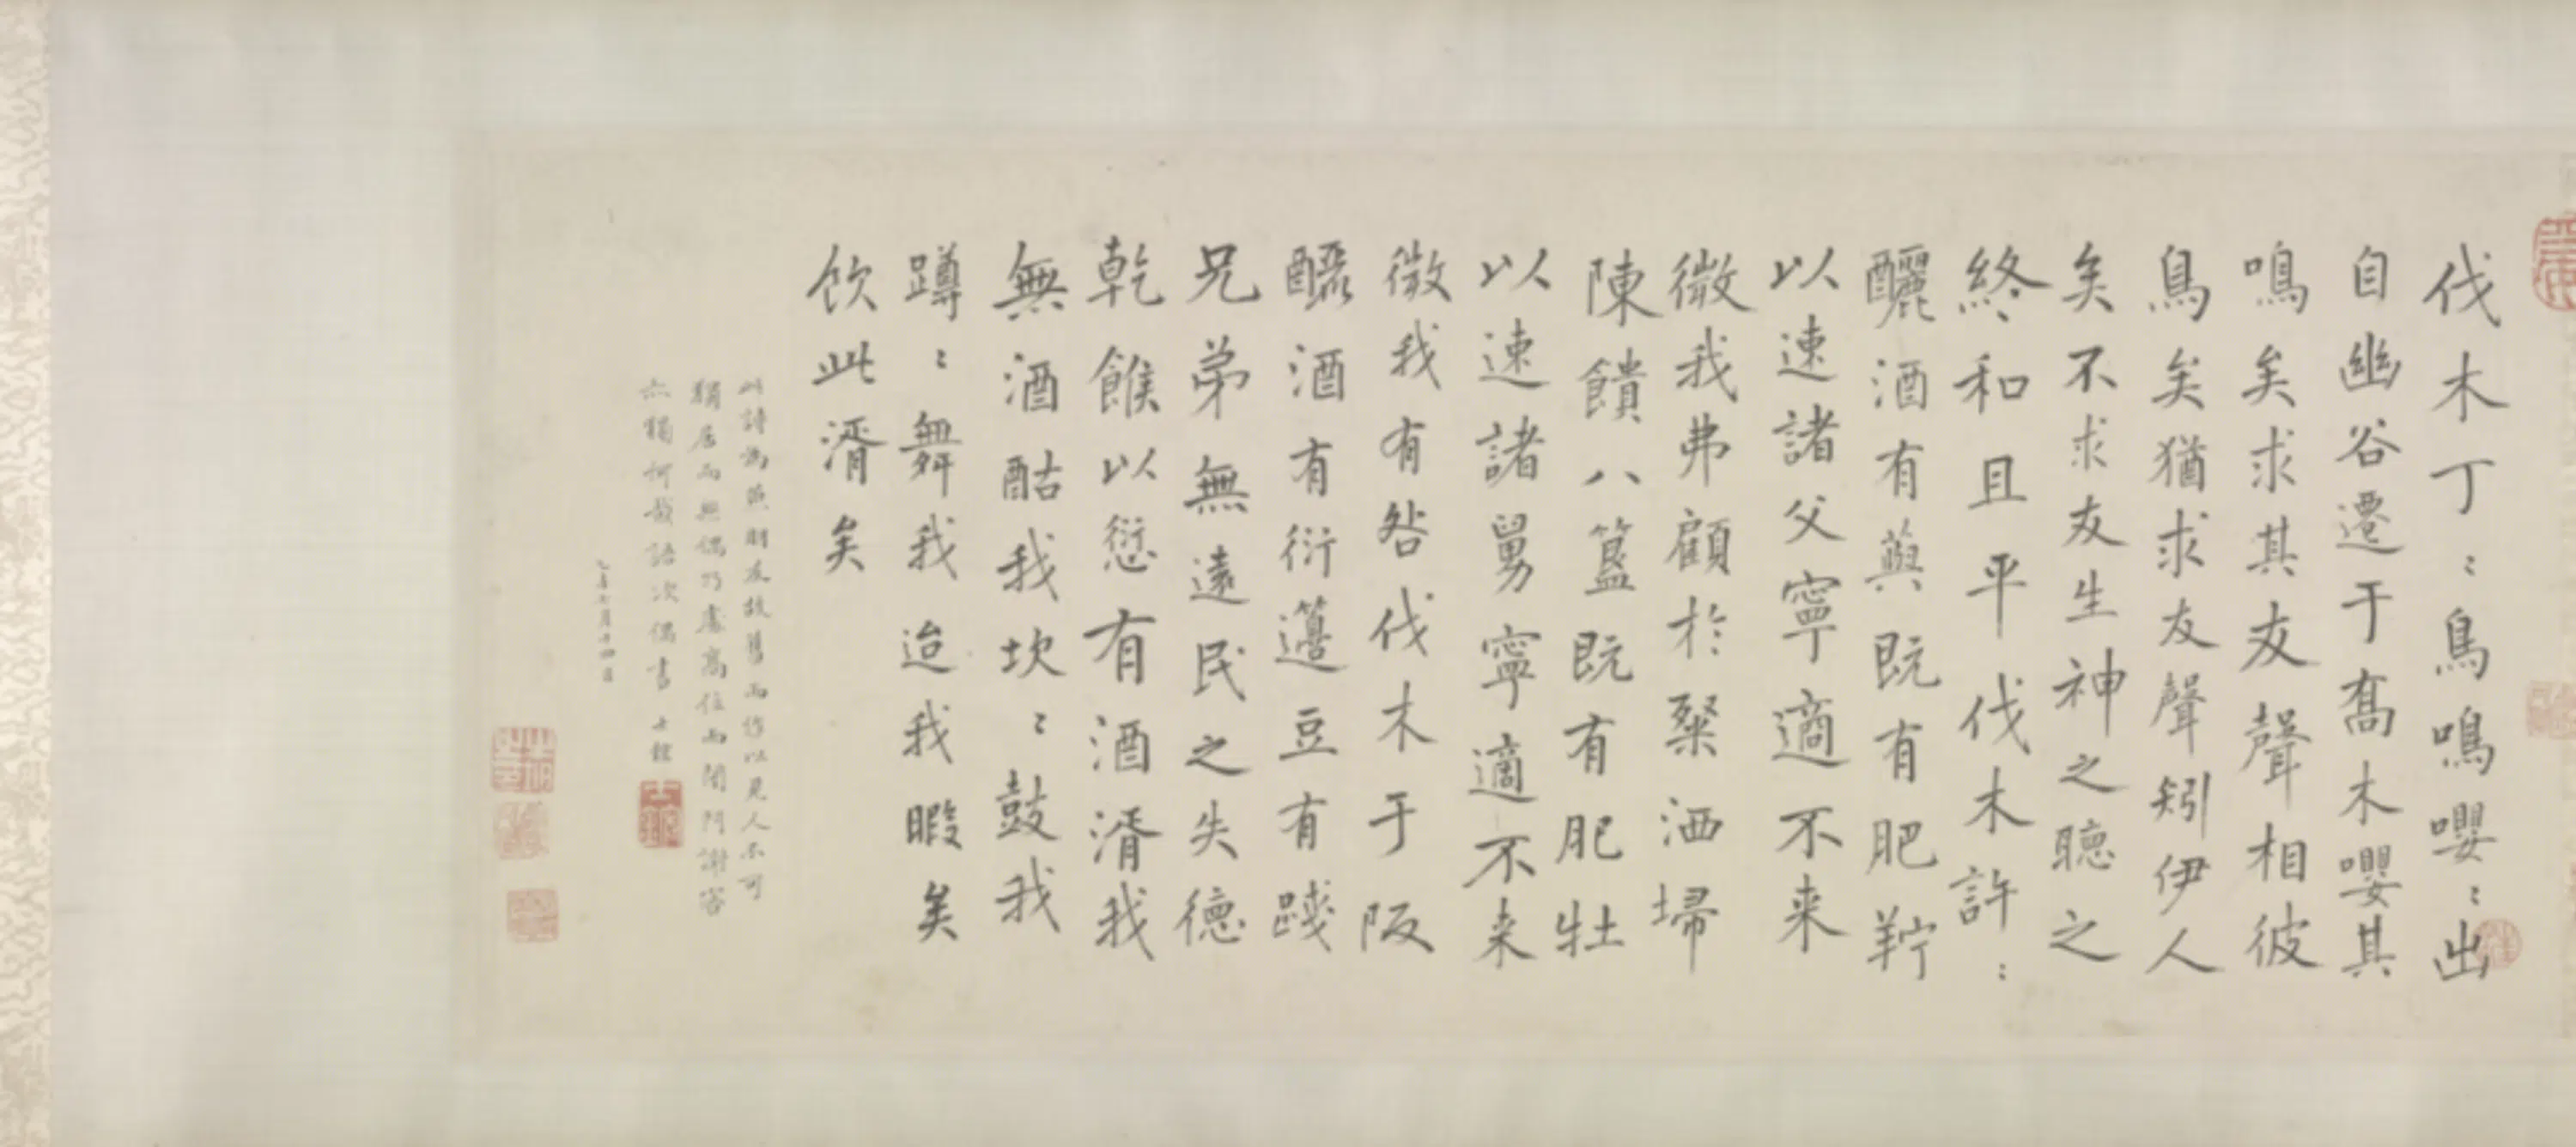 伐木丁〻鳥鳴嚶〻出
自幽谷遷于喬木嚶其
鳴矣求其友聲相彼
鳥矣猶求友聲矧伊人
矣不求友生神之聽之
終和且平伐木許〻
釃酒有藇既有肥羜
以速諸父寧適不来
微我弗顧於粲洒埽
陳饋八簋既有肥牡
以速諸舅寧適不来
微我有咎伐木于阪
釃酒有衍籩豆有踐
兄弟無遠民之失德
乾餱以愆有酒湑我
無酒酤我坎〻鼓我
蹲〻舞我迨我暇矣
飲此湑矣
此詩為燕朋友故舊而作以見人不可
獨居而無偶乃處高位而閉門謝客
亦獨何哉語次偶書士
七月十四日